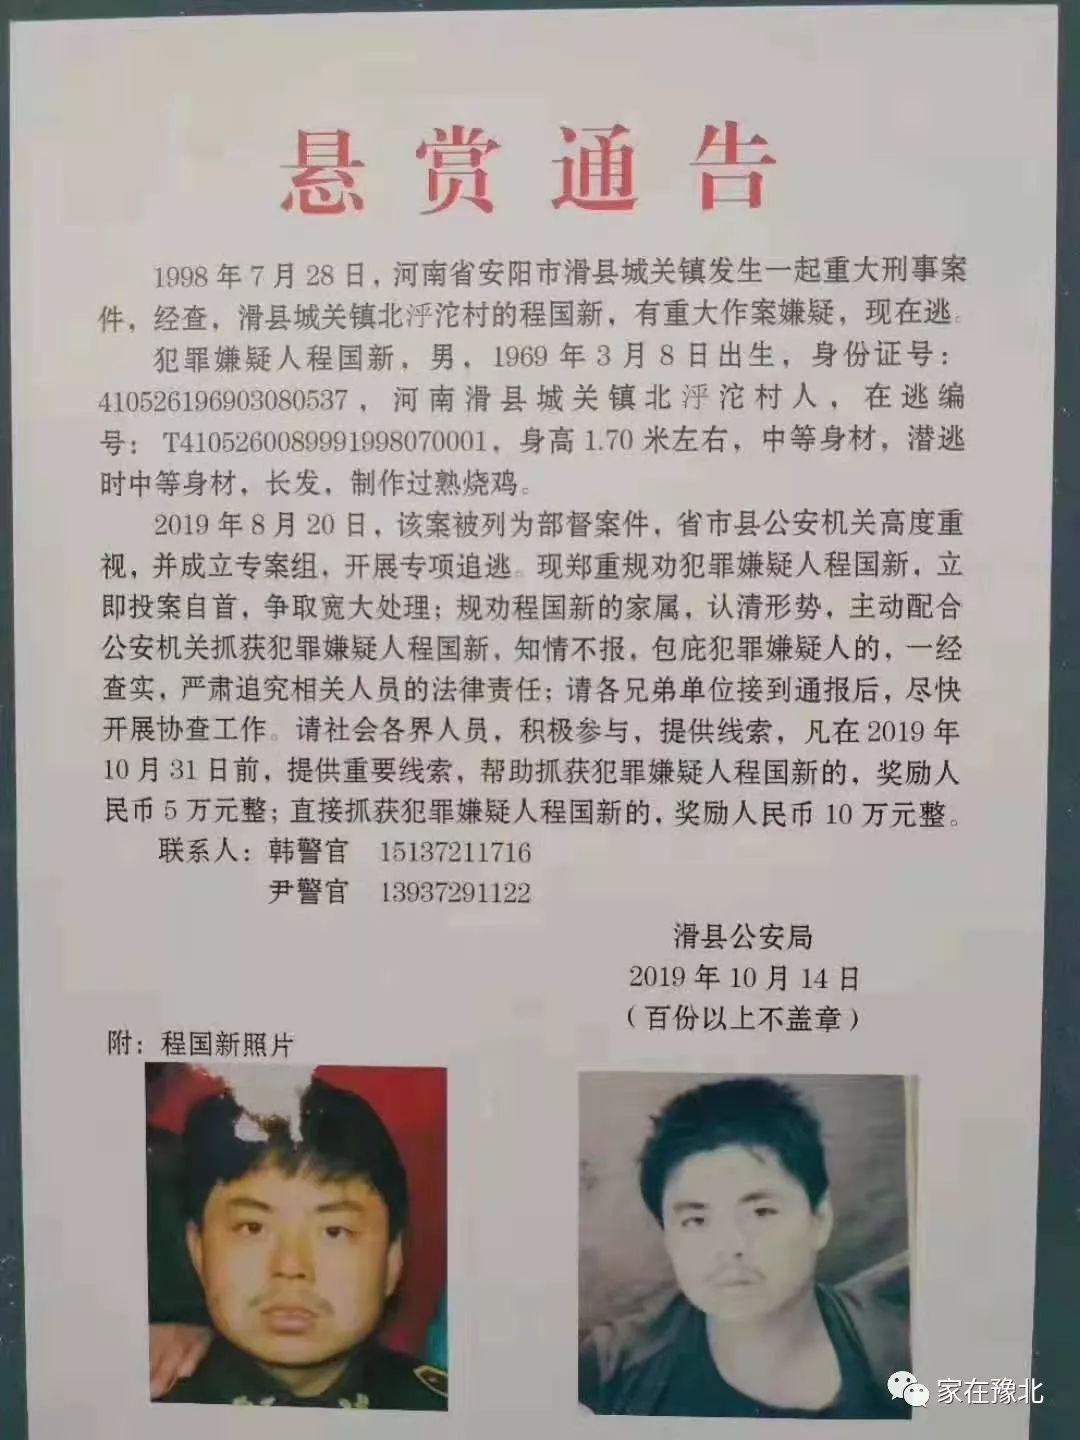 悬赏通告
1998年7月28日，河南省安阳市滑县城关镇发生一起重大刑事案
件，经查，滑县城关镇北泘沱村的程国新，有重大作案嫌疑，现在逃。
犯罪嫌疑人程国新，男，1969年3月8日出生，身份证号：
410526196903080537，河南滑县城关镇北泘沱村人，在逃编
号：T4105260089991998070001，身高1.70米左右，中等身材，潜逃
时中等身材，长发，制作过熟烧鸡。
2019年8月20日，该案被列为部督案件，省市县公安机关高度重
视，并成立专案组，开展专项追逃。现郑重规劝犯罪嫌疑人程国新，立
即投案自首，争取宽大处理；规劝程国新的家属，认清形势，主动配合
公安机关抓获犯罪嫌疑人程国新，知情不报，包庇犯罪嫌疑人的，一经
查实，严肃追究相关人员的法律责任；请各兄弟单位接到通报后，尽快
开展协查工作。请社会各界人员，积极参与，提供线索，凡在2019年
10月31日前，提供重要线索，帮助抓获犯罪嫌疑人程国新的，奖励人
民币5万元整；直接抓获犯罪嫌疑人程国新的，奖励人民币10万元整。
联系人：韩警官 15137211716
尹警官 13937291122
滑县公安局
2019年10月14日
（百份以上不盖章）
附：程国新照片
家在豫北